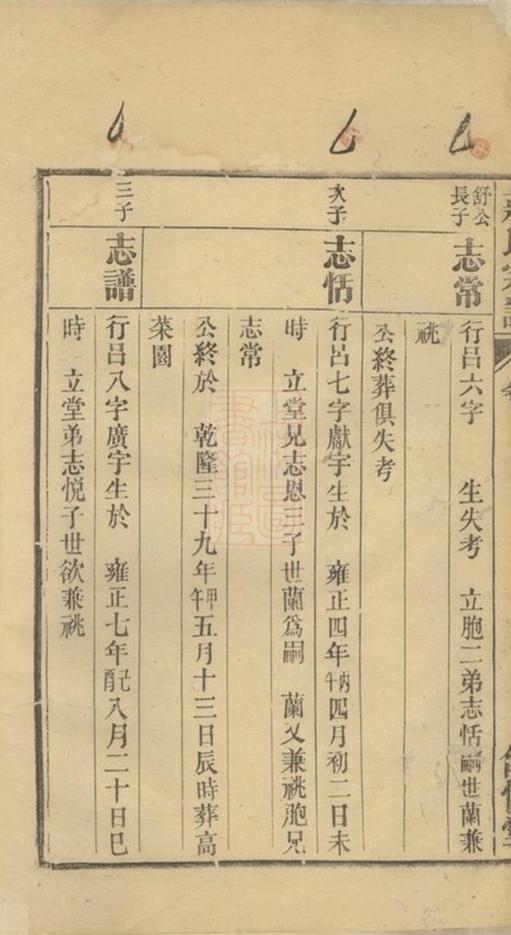 舒公長子
志常
行呂六字 生失考 立胞二弟志恬嗣世蘭兼
祧
公終葬俱失考
次子
志恬
行呂七字獻宇生於 雍正四年丙午四月初二日未
時 立堂兄志恩三子世蘭爲嗣 蘭又兼祧胞兄
志常
公終於 乾隆三十九年甲午五月十三日辰時葬高
菜園
三子
志譜
行呂八字廣宇生於 雍正七年己酉八月二十日巳
時 立堂弟志悅子世欲兼祧